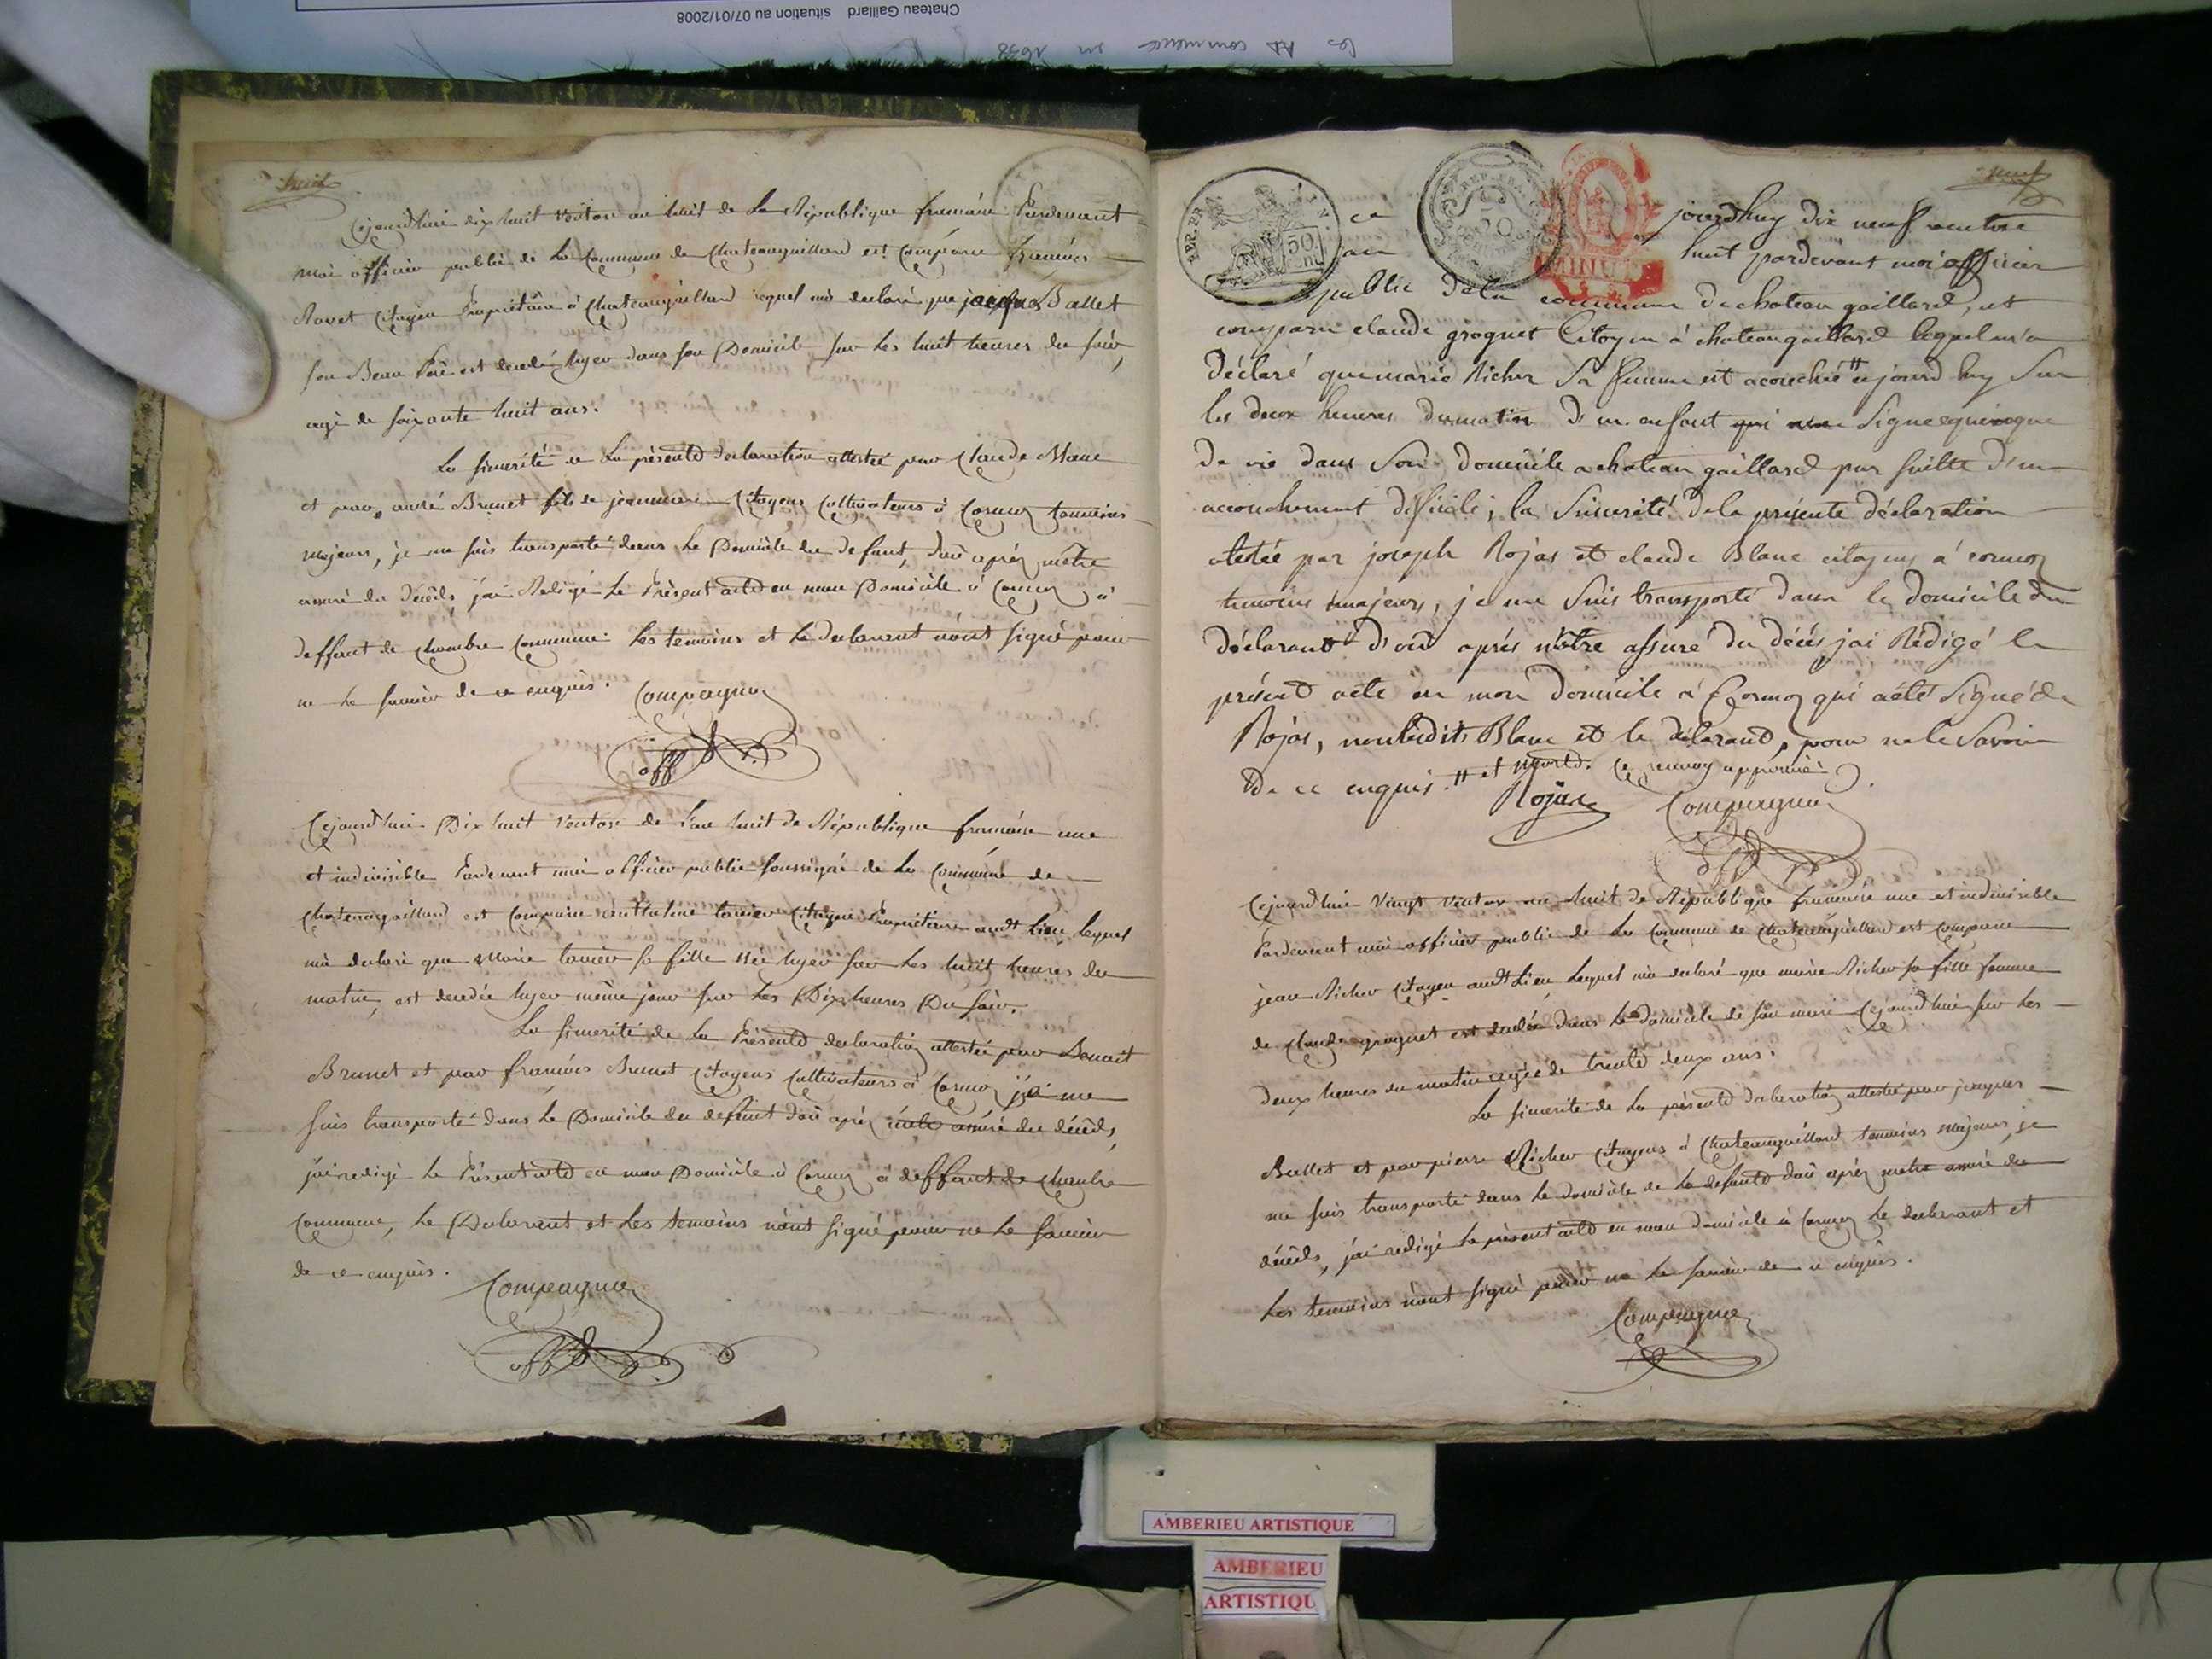 Chateau Gaillard situation au 07/01/2008
huit
Cejourdhui dix huit ventose an huit de La République francaise Pardevant
moi officier public de La Commune de Chateaugaillard est Comparu francois
Ravet Citoyen Propriétaire à Chateaugaillard lequel m'a declaré que jacques Ballet
son Beau Pere est decedé hyer dans son Domicile sur Les huit heures du soir,
agé de soixante huit ans.
La sincerité de La présente declaration attestée par Claude Blanc
et par andré Brunet fils de jeanmarie Citoyens Cultivateurs à Cormoz temoins
majeurs, je me suis transporté dans Le Domicile du defunt, d'ou aprés m'etre
assuré du décéds, j'ai Redigé Le Présent acte en mon Domicile à Cormoz à
deffaut de chambre Commune Les temoins et Le declarant n'ont signé pour
ne Le savoir de ce enquis. Compagnon
off p.
Cejourdhui Dix huit ventose de l'an huit de République francaise une
et indivisible Pardevant moi officier public soussigné de La Commune de
Chateaugaillard est Comparu anthelme Citoyen Propriétaire audt Lieu, Lequel
m'a declaré que Marie sa fille née hyer sur Les huit heures du
matin, est decedée hyer même jour sur Les Dix heures Du soir.
La sincerité de La Présente declaration attestée par Benoit
Brunet et par francois Brunet Citoyens Cultivateurs à Cormoz j'ai me
suis transporté dans Le Domicile du defunt d'ou aprés m'etre assuré du décéds,
j'ai redigé Le Présent acte en mon Domicile à Cormoz à deffaut de chambre
Commune, Le Declarant et Les temoins n'ont signé pour ne Le savoir
de ce enquis. Compagnon
off p.
neuf
REP. FRA
50.
cent
REP. FRA
50
MINUT
ce jourdhuy dix neuf ventose
an huit pardevant moi officier
public de la commune de chateau gaillard, est
comparu claude grognet Citoyen à chateaugaillard lequel m'a
déclaré que marie Richer Sa femme est acouchée # cejourd huy Sur
les deux heures du matin d'un enfant qui Signe equivoque
de vie dans Son domicile a chateau gaillard par suitte d'un
accouchement dificile; la Sincerité de la présente déclaration
atestée par joseph Rojas et claude Blanc citoyens à cormoz
temoins majeurs, je me Suis transporté dans le domicile du
déclarant d'où aprés m'être assuré du décés jai Rédigé le
présent acte en mon domicile à Cormoz qui a été Signé de
Rojas, non ledit Blanc et le déclarant, pour ne le Savoir
de ce enquis. # et
Rojas Compagnon
off p.
Cejourdhui vingt ventose an huit de République francaise une et indivisible
Pardevant moi officier public de La Commune de Chateaugaillard est Comparu
jean Richer Citoyen audt Lieu Lequel m'a declaré que marie Richer sa fille femme
de Claude grognet est decedée dans Le domicile de son mari Cejourdhui sur Les
deux heures du matin agée de trente deux ans.
La sincerité de La présente declaration attestée par jacques
Ballet et par pierre Richer Citoyens à Chateaugaillard temoins majeurs, je
me suis transporté dans Le domicile de La defunte d'ou aprés m'etre assuré du
décéds, j'ai redigé Le présent acte en mon domicile à Cormoz Le declarant et
Les temoins n'ont signé pour ne Le savoir de ce enquis.
Compagnon
AMBERIEU ARTISTIQUE
AMBERIEU
ARTISTIQU